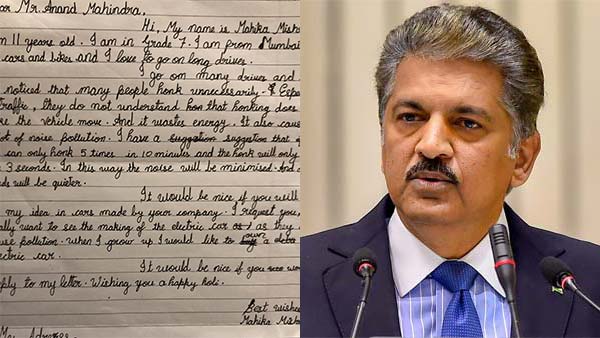 ar Mr. Anand Mahindra,
Hi, My name is Mahika Mish
m 11 years old. I am in Grade 7. I am from Mumbai
cars and bikes and I love to go on long drives.
I go on many drives and
noticed that many people honk unnecessarily. Espe
traffic, they do not understand that honking does
the vehicle move. And it wastes energy. It also caus
ot of noise pollution. I have a suggestion suggestion that
can only honk 5 times in 10 minutes and the honk will only
3 seconds. In this way the noise will be minimised. And
ds will be quieter.
It would be nice if you will
my idea in cars made by your company. I request you,
ally want to see the making of the electric car as they
use pollution. When I grow up I would like to own a
ectric car.
It would be nice if you wou
eply to my letter. Wishing you a happy holi.
Best wishes
Mahika Mish